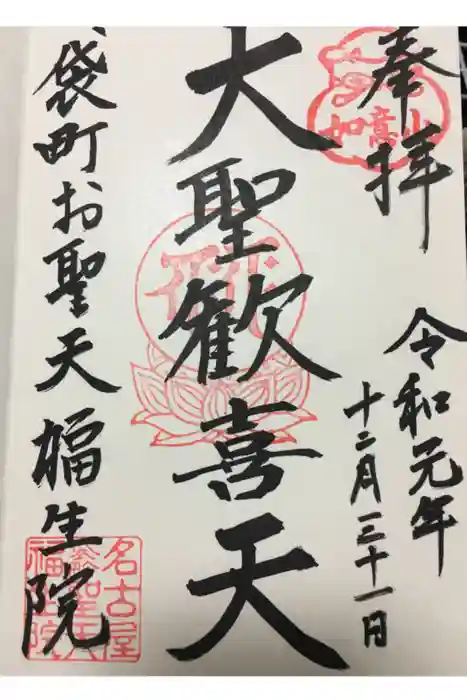 奉拝
令和元年
十二月三十一日
如意山
大聖歓喜天
袋町お聖天 福生院
名古屋
聖天
福生院